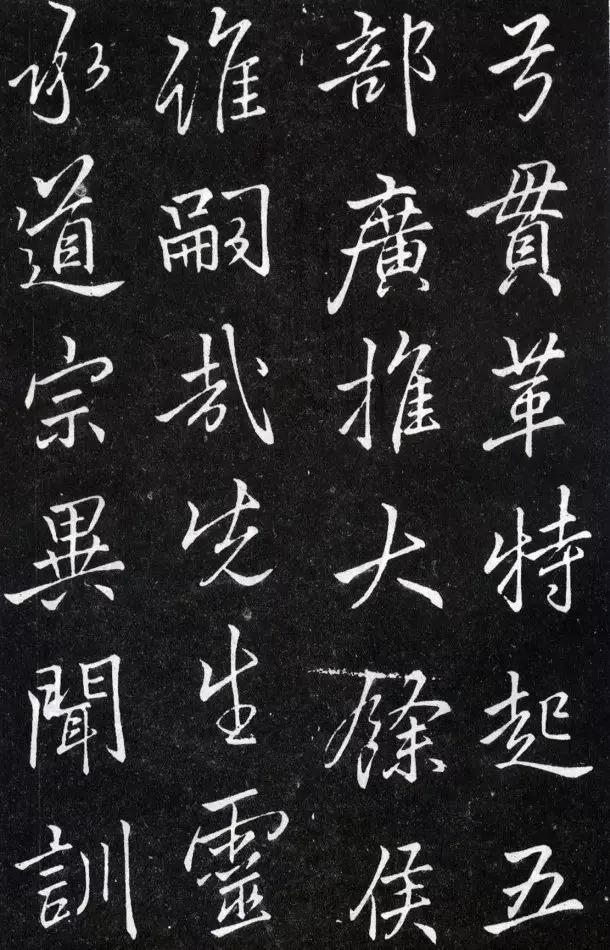 号貫革特起五
部廣推大餘侯
誰嗣哉先生靈
承道宗異聞訓